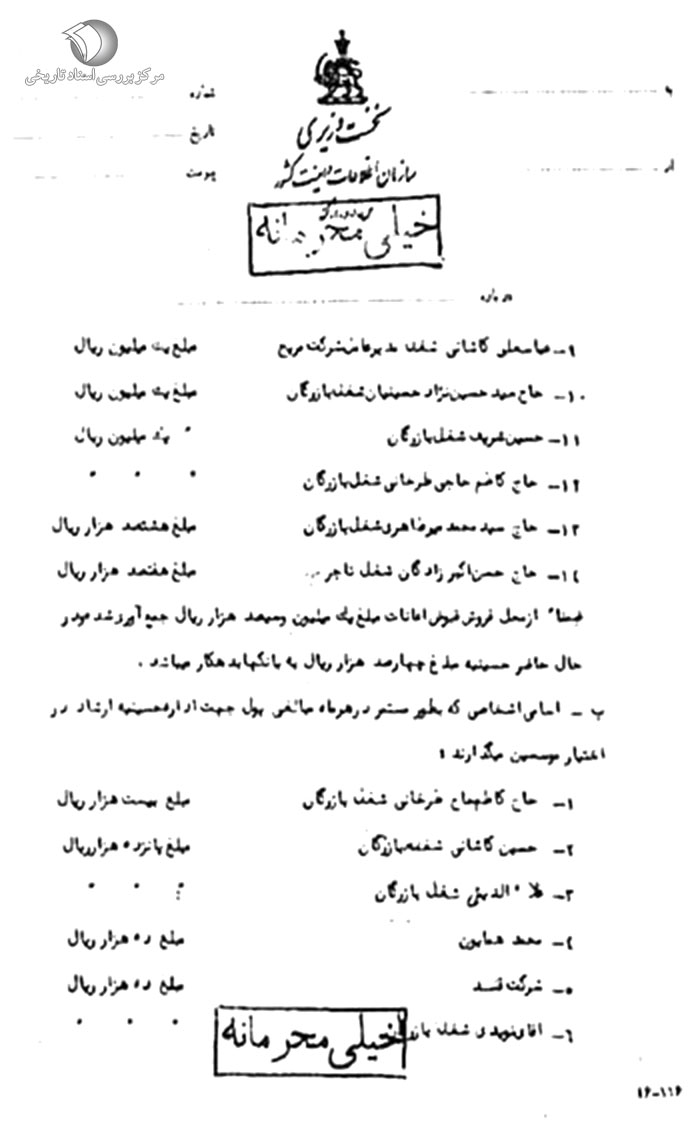 مرکز بررسی اسناد تاریخی
شماره
تاریخ
پیوست
نخست وزیری
سازمان اطلاعات و امنیت کشور
از
خیلی محرمانه
درباره
۹- عباسعلی کاشانی شغل مدیرعامل شرکت مریخ مبلغ یک میلیون ریال
۱۰- حاج سید حسین نژاد حسینیان شغل بازرگان مبلغ یک میلیون ریال
۱۱- حسین شریف شغل بازرگان " یک میلیون ریال
۱۲- حاج کاظم حاجی طرخانی شغل بازرگان " " "
۱۳- حاج سید محمد میرطاهری شغل بازرگان مبلغ هشتصد هزار ریال
۱۴- حاج حسن اکبرزادگان شغل تاجر مبلغ هفتصد هزار ریال
ضمنا" از محل فروش قبوض اعانات مبلغ یک میلیون و سیصد هزار ریال جمع آوری شده و در
حال حاضر حسینیه مبلغ چهارصد هزار ریال به بانکها بدهکار میباشد .
ب - اسامی اشخاصی که بطور مستمر در هر ماه مبالغی پول جهت اداره حسینیه ارشاد در
اختیار موسسین میگذارند :
۱- حاج کاظم حاج طرخانی شغل بازرگان مبلغ بیست هزار ریال
۲- حسین کاشانی شغل بازرگان مبلغ پانزده هزار ریال
۳- علاء الدینی شغل بازرگان " " "
۴- محمد همایون مبلغ ده هزار ریال
۵- شرکت قند مبلغ ده هزار ریال
۶- آقای نویدی شغل بازرگان " " "
خیلی محرمانه
۱۶-۱۱۶